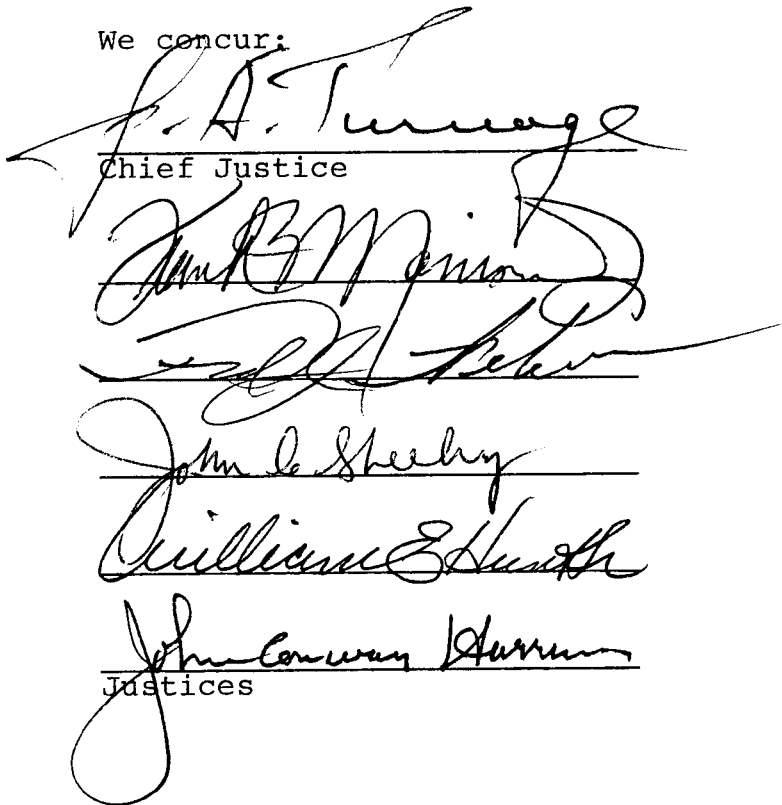 We concur:
J. A. Turnage
Chief Justice
Frank B Morrison
John C Sheehy
William E Hunt Sr
John Conway Harrison
Justices